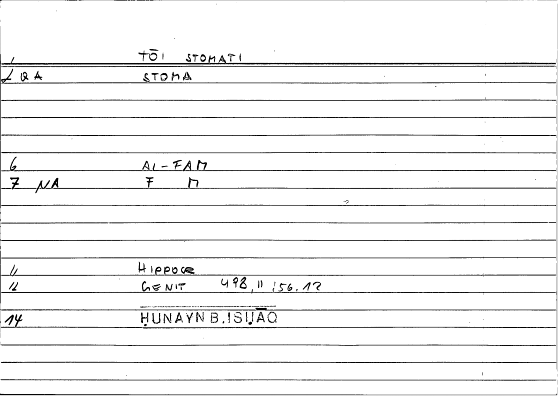 1 TŌI STOMATI
2 QA STOMA
6 AL-FAM
7 NA F M
11 HIPPOCR
12 GENIT 498, 11 156.12
14 ḤUNAYN B.ISḤĀQ